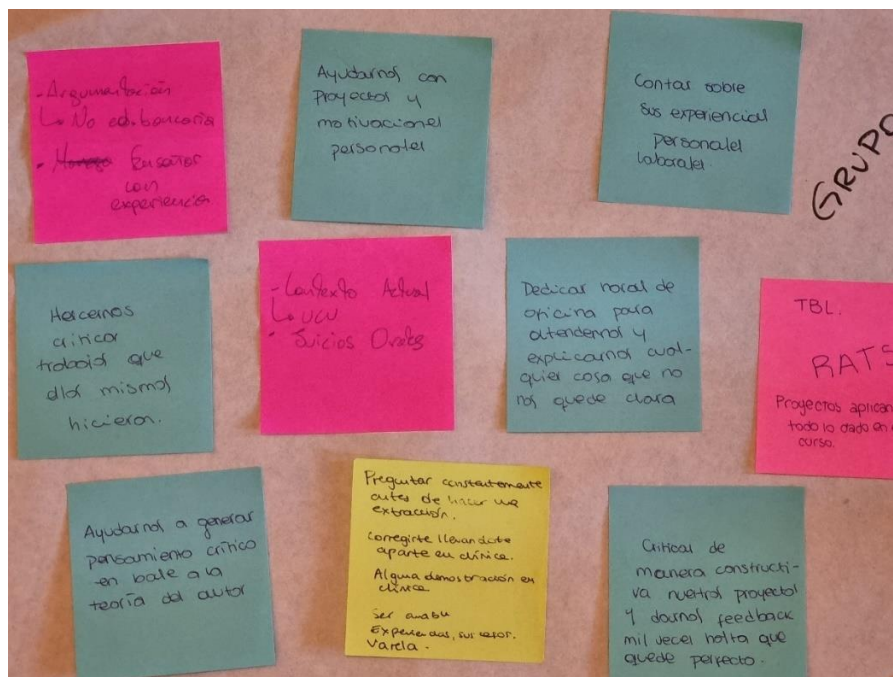 - Argumentación
↳ No ed. bancaria
- Enseñar
con
experiencia
Ayudarnos con
Proyectos y
motivaciones
personales
Contar sobre
sus experiencias
personales
laborales.
GRUPO
Hacernos
criticar
trabajos que
ellos mismos
hicieron.
- Contexto Actual
↳ UCU
- Juicios Orales
Dedicar horas de
oficina para
atendernos y
explicarnos cual-
quier cosa que no
nos quede clara
TBL.
RATS
Proyectos aplican
todo lo dado en
curso.
Ayudarnos a generar
pensamiento crítico
en base a la
teoría del autor
Preguntar constantemente
antes de hacer una
extracción.
Corregirte llevandote
aparte en clínica.
Alguna demostración en
clínica
Ser amable
Experiencias, sus
Varela.
Criticar de
manera constructi-
va nuestros proyectos
y darnos feedback
mil veces hasta que
quede perfecto.